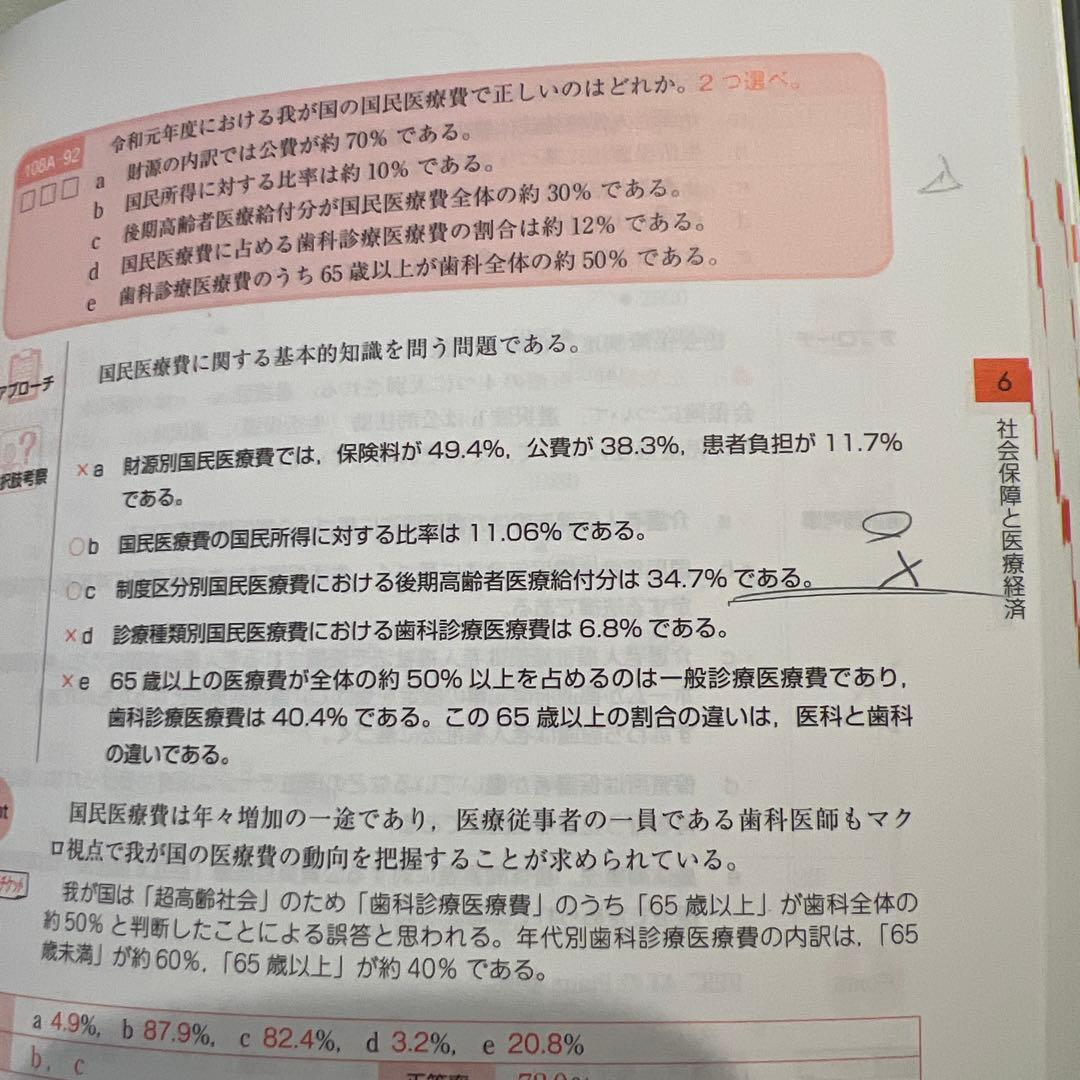 108A-92
令和元年度における我が国の国民医療費で正しいのはどれか。2つ選べ。
a 財源の内訳では公費が約70%である。
b 国民所得に対する比率は約10%である。
c 後期高齢者医療給付分が国民医療費全体の約30%である。
d 国民医療費に占める歯科診療医療費の割合は約12%である。
e 歯科診療医療費のうち65歳以上が歯科全体の約50%である。
アプローチ
国民医療費に関する基本的知識を問う問題である。
択肢考察
×a 財源別国民医療費では，保険料が49.4%，公費が38.3%，患者負担が11.7%
である。
○b 国民医療費の国民所得に対する比率は11.06%である。
○c 制度区分別国民医療費における後期高齢者医療給付分は34.7%である。
×d 診療種類別国民医療費における歯科診療医療費は6.8%である。
×e 65歳以上の医療費が全体の約50%以上を占めるのは一般診療医療費であり，
歯科診療医療費は40.4%である。この65歳以上の割合の違いは，医科と歯科
の違いである。
国民医療費は年々増加の一途であり，医療従事者の一員である歯科医師もマク
ロ視点で我が国の医療費の動向を把握することが求められている。
我が国は「超高齢社会」のため「歯科診療医療費」のうち「65歳以上」が歯科全体の
約50%と判断したことによる誤答と思われる。年代別歯科診療医療費の内訳は，「65
歳未満」が約60%，「65歳以上」が約40%である。
a 4.9%, b 87.9%, c 82.4%, d 3.2%, e 20.8%
b, c
正答率
6
社会保障と医療経済